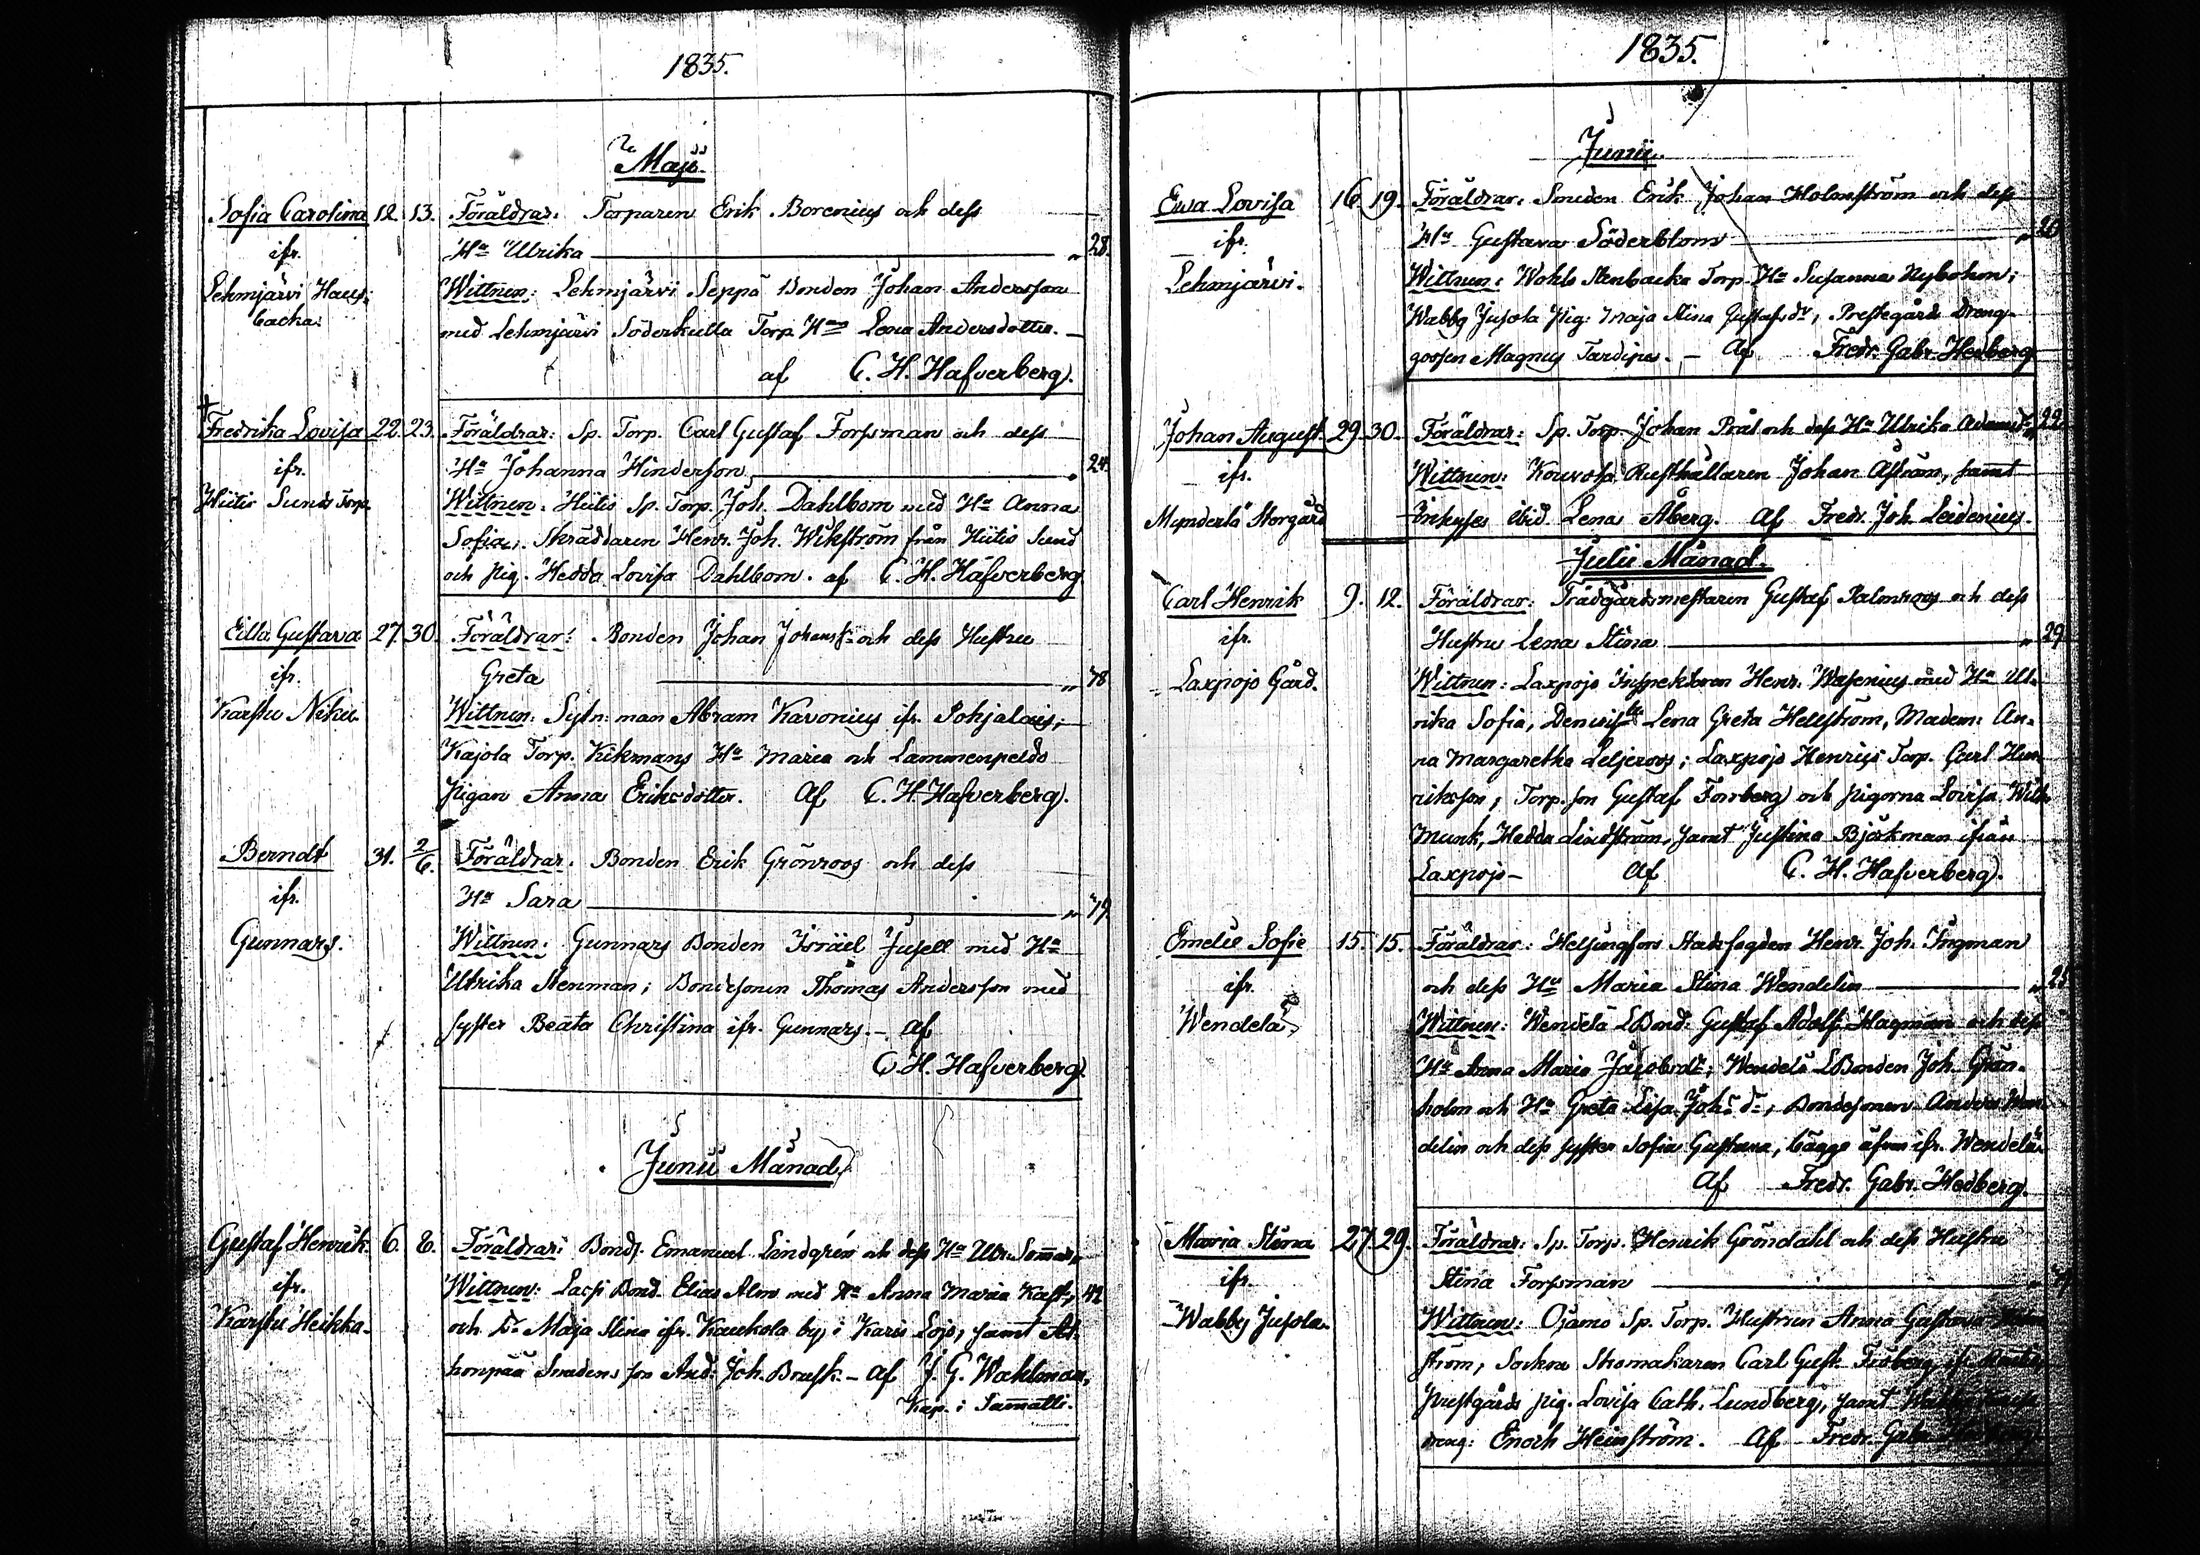 1835.
Maji.
Sofia Carolina 12. 13. Föräldrar: Torparen Erik Borenius och dess
ifr. Hu Ulrika " 28.
Lehmjärvi Haus- Wittnen: Lehmjärvi Seppä Bonden Johan Andersson
backa. med Lehmjärvi Söderkulla Torp. Hu Lena Andersdotter.
af C. H. Hafverberg.
+
Fredrika Lovisa 22. 23. Föräldrar: Sp. Torp. Carl Gustaf Forssman och dess
ifr. Hu Johanna Hinderson " 24.
Hiitis Sunds Torp. Wittnen: Hiitis Sp. Torp. Joh. Dahlbom med Hu Anna
Sofia; Skräddaren Henr. Joh. Wikström från Hiitis Sund
och pig. Hedda Lovisa Dahlbom. af C. H. Hafverberg
Gustava 27. 30. Föräldrar: Bonden Johan Johanss. och dess Hustru
ifr. Greta " 78
Karstu Wittnen: man Abram Kavonius ifr. Pohjalais;
Kajola Torp. Kikmans Hu Maria och Lammenpelds
Pigan Anna Eriksdotter. Af C. H. Hafverberg.
Berndt 31. 2/6. Föräldrar: Bonden Erik Grönroos och dess
ifr. Hu Sara " 79.
Gunnars. Wittnen: Gunnars Bonden Israël Jusell med Hu
Ulrika Stenman; Bondesonen Thomas Andersson med
syster Beata Christina ifr. Gunnars. – af
C. H. Hafverberg.
Junii Månad.
Gustaf Henrik 6. 8. Föräldrar: Bonds. Emanuel Lindgrén och dess Hu
ifr. Wittnen: Bond. Elias Alm med Hu Anna Maria 42
Karstu Heikka. och Dr Maja Stina ifr. Kaukola by, i Karis Lojo, samt
Smedens son And. Joh. – af J. G. Wahlman,
Kap. i Sammatti.
1835.
Junii.
Ewa Lovisa 16. 19. Föräldrar: Smeden Erik Johan Holmström och dess
ifr. Hu Gustava Söderblom
Lehmjärvi. Wittnen: Wohls Stenbacka Torp. Hu Susanna Nybohm;
Wabby Jusola Pig. Maja Stina Gustafsdr, Prestegårds Dreng-
gossen Magnus – Af Fredr. Gabr. Hedberg.
Johan August 29. 30. Föräldrar: Sp. Torp. Johan och dess Hu Ulrika 22.
ifr. Wittnen: Kouvola Rusthållaren Johan Åström, samt
Mynderlä Storgård ibid. Lena Åberg. Af Fredr. Joh. Leidenius.
Julii Månad.
Carl Henrik 9. 12. Föräldrar: Trädgårdsmestaren Gustaf Palmroos och dess
ifr. Hustru Lena Stina " 29
Laxpojo Gård. Wittnen: Laxpojo Inspektoren Henr. Wasenius med Hu Ul-
rika Sofia, Lena Greta Hellström, An-
na Margaretha Leljeroos; Laxpojo Henriks Torp. Carl Hen-
rikson, Torp. son Gustaf Forrberg och pigorna Lovisa
Munk, Hedda Lindström, samt Justina Björkman ifrån
Laxpojo – Af C. H. Hafverberg.
Emelie Sofie 15. 15. Föräldrar: Helsingfors Stadsfogden Henr. Joh. Ingman
ifr. och dess Hu Maria Stina Wendelin
Wendelä Wittnen: Wendelä Bond: Gustaf Adolf Hagman och dess
Hu Anna Maria Jacobsdr; Wendelä Bonden Joh. Grön-
holm och Hu Greta Lisa Johsdr, Bondesonen Anders Wen-
delin och dess syster Sofia Gustava, bägge äfven ifr. Wendelä.
Af Fredr. Gabr. Hedberg.
Maria Stina 27. 29. Föräldrar: Sp. Torp. Henrik Gröndahl och dess Hustru
ifr. Stina Forssman
Wabby Jusola. Wittnen: Ojamo Sp. Torp. Hustrun Anna Gustava
ström, Sockne Skomakaren Carl Gust.
Prestgårds pig. Lovisa Cath. Lundberg, samt
dreng: Enoch Heinström. Af Fredr. Gabr.